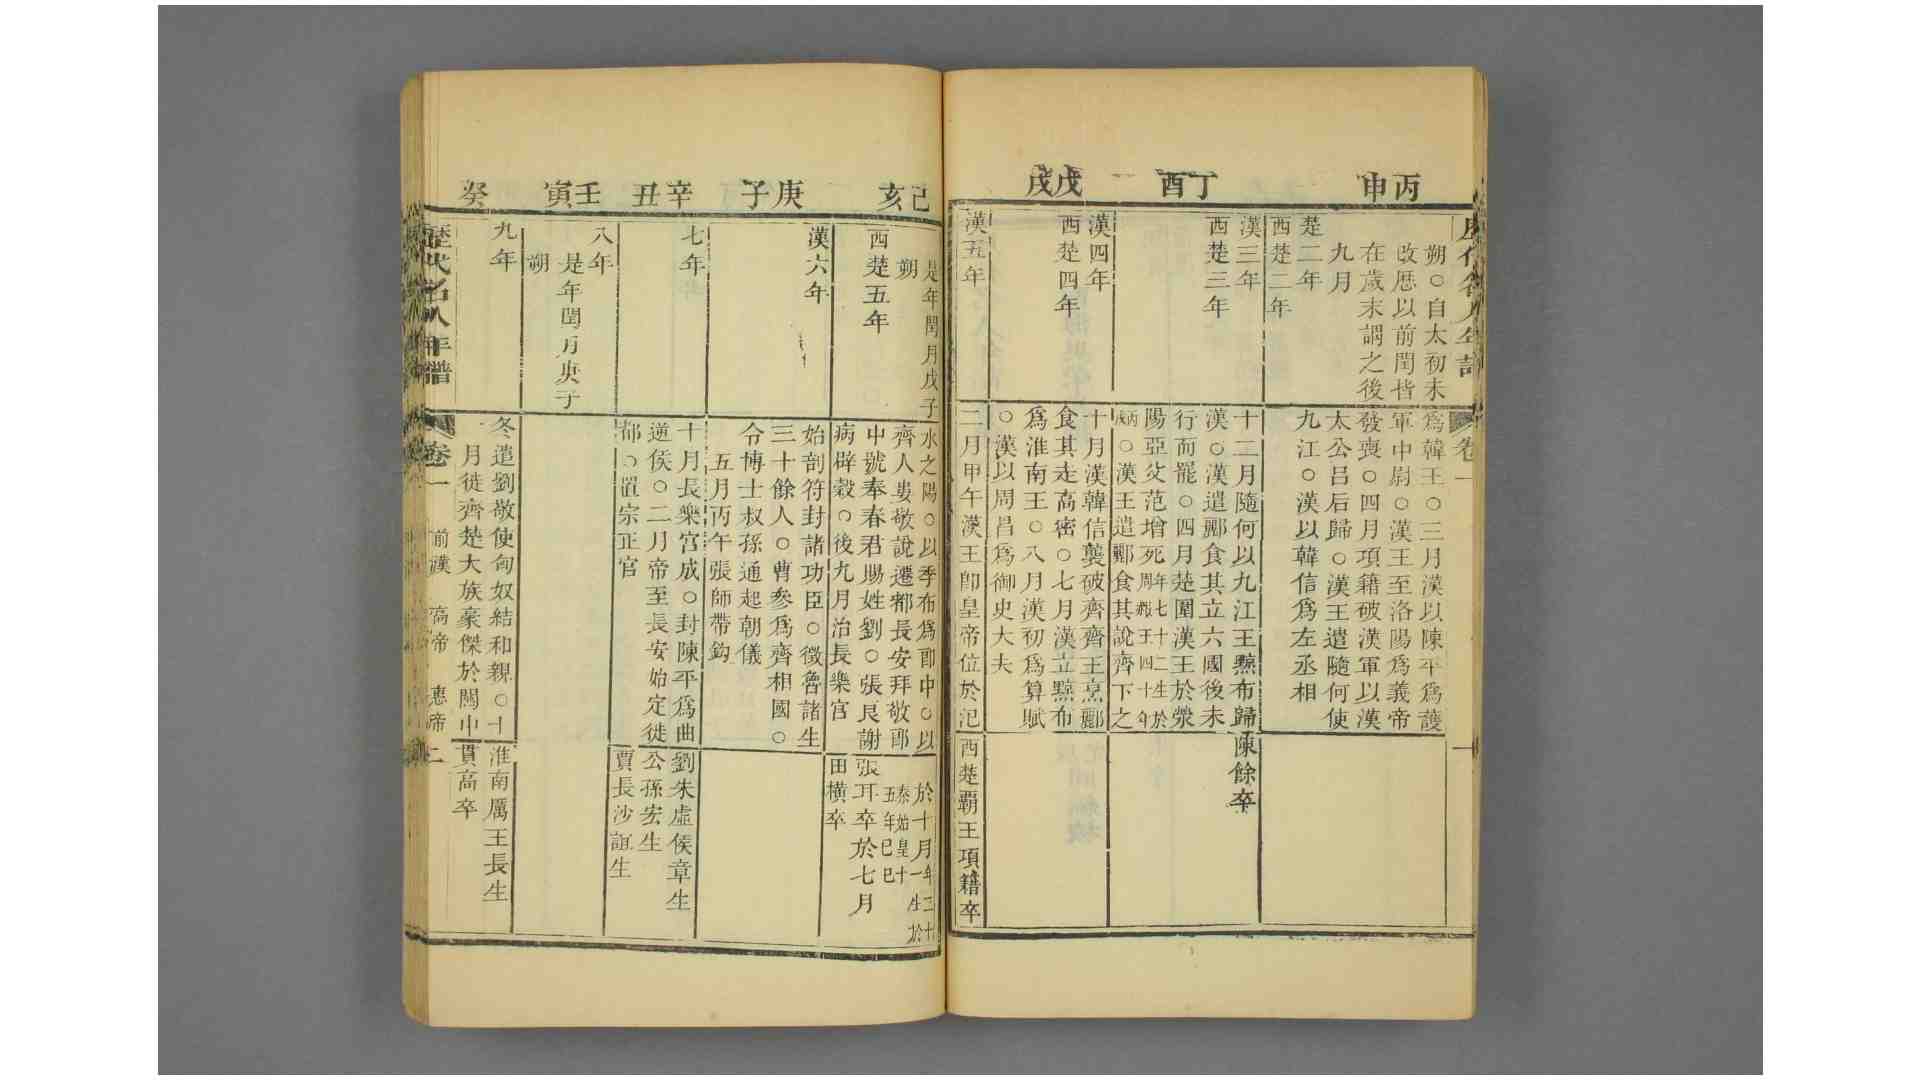 丙申
丁酉
戊戌
朔○自太初未
改厯以前閏皆
在歲末謂之後
九月
楚二年
西楚二年
漢三年
西楚三年
漢四年
西楚四年
漢五年
爲韓王○三月漢以陳平爲護
軍中尉○漢王至洛陽爲義帝
發喪○四月項籍破漢軍以漢
太公呂后歸○漢王遣隨何使
九江○漢以韓信爲左丞相
十二月隨何以九江王黥布歸
漢○漢遣酈食其立六國後未
行而罷○四月楚圍漢王於滎
陽亞父范增死年七十二生於
周赧王四十年
丙戌○漢王遣酈食其說齊下之
十月漢韓信襲破齊齊王烹酈
食其走高密○七月漢立黥布
爲淮南王○八月漢初爲算賦
○漢以周昌爲御史大夫
二月甲午漢王卽皇帝位於汜
陳餘卒
西楚霸王項籍卒
歷代名人年譜
卷一
己亥
庚子
辛丑
壬寅
癸
是年閏月戊子
朔
西楚五年
漢六年
七年
八年
是年閏月庚子
朔
九年
水之陽○以季布爲郎中○以
齊人婁敬說遷都長安拜敬郎
中號奉春君賜姓劉○張良謝
病辟穀○後九月治長樂宮
始剖符封諸功臣○徵魯諸生
三十餘人○曹參爲齊相國○
令博士叔孫通起朝儀
五月丙午張師帶鈎
十月長樂宮成○封陳平爲曲
逆侯○二月帝至長安始定徙
都○置宗正官
冬遣劉敬使匈奴結和親○十
一月徙齊楚大族豪傑於關中
於十月年三十
一生於
秦始皇十
五年己巳
張耳卒於七月
田橫卒
劉朱虛侯章生
公孫宏生
賈長沙誼生
淮南厲王長生
貫高卒
歷代名人年譜
卷一
前漢
高帝
惠帝
二